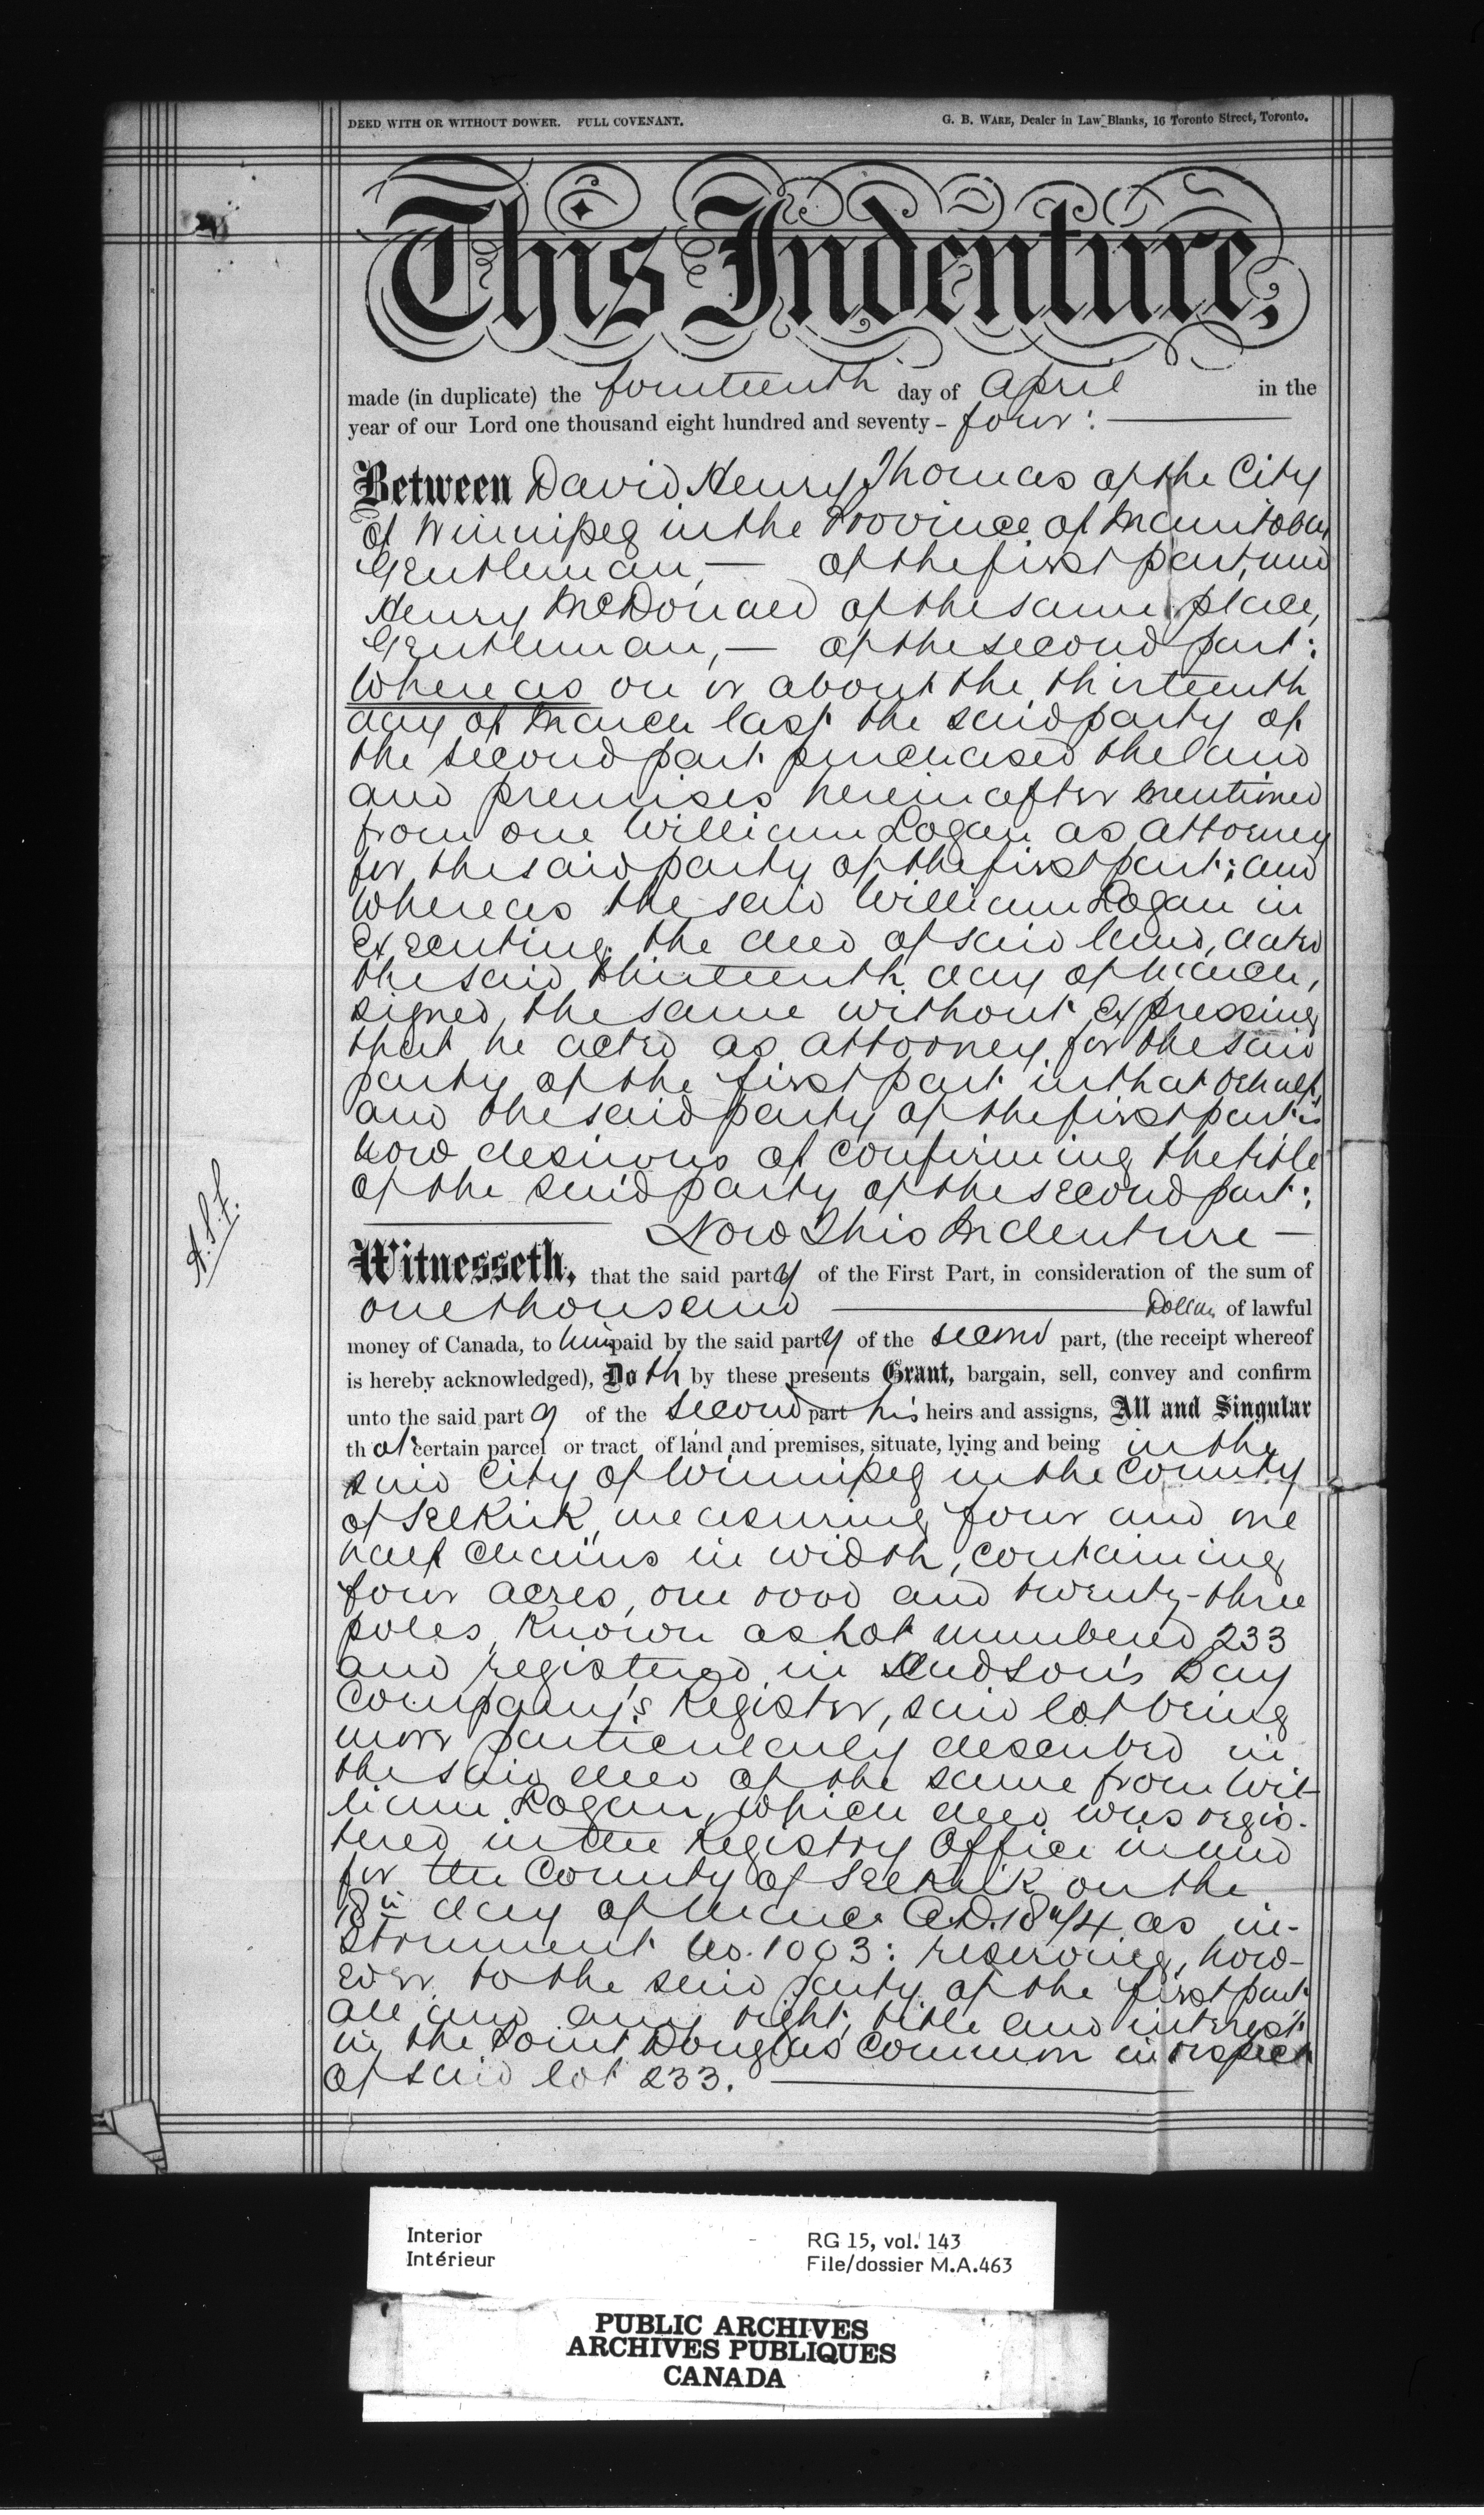 DEED WITH OR WITHOUT DOWER. FULL COVENANT.
G. B. WARE, Dealer in Law Blanks, 16 Toronto Street, Toronto.
This Indenture,
made (in duplicate) the fourteenth day of April in the
year of our Lord one thousand eight hundred and seventy - four :
Between David Henry Thomas of the City
of Winnipeg in the Province of Manitoba,
Gentleman, — of the first part, and
Henry McDonald of the same place,
Gentleman, — of the second part:
Whereas on or about the thirteenth
day of March last the said party of
the second part purchased the land
and premises hereinafter mentioned
from one William Logan as attorney
for the said party of the first part; and
whereas the said William Logan in
executing the deed of said land, dated
the said thirteenth day of March,
signed the same without expressing
that he acted as attorney for the said
party of the first part in that behalf,
and the said party of the first part is
now desirous of confirming the title
of the said party of the second part:
Now This Indenture —
Witnesseth, that the said party of the First Part, in consideration of the sum of
one thousand — Dollars of lawful
money of Canada, to him paid by the said party of the second part, (the receipt whereof
is hereby acknowledged), Doth by these presents Grant, bargain, sell, convey and confirm
unto the said party of the second part his heirs and assigns, All and Singular
that certain parcel or tract of land and premises, situate, lying and being in the
said City of Winnipeg in the County
of Selkirk, measuring four and one
half chains in width, containing
four acres, one rood and twenty-three
poles, known as Lot numbered 233
and registered in Hudson's Bay
Company's Register, said lot being
more particularly described in
the said deed of the same from Wil-
liam Logan, which deed was regis-
tered in the Registry Office in and
for the County of Selkirk on the
18th day of March A.D. 1874 as in-
strument No. 1003: reserving, how-
ever, to the said party of the first part
all and any right, title and interest
in the Point Douglas Common in respect
of said lot 233.
A.S.F.
Interior
Intérieur
RG 15, vol. 143
File/dossier M.A.463
PUBLIC ARCHIVES
ARCHIVES PUBLIQUES
CANADA